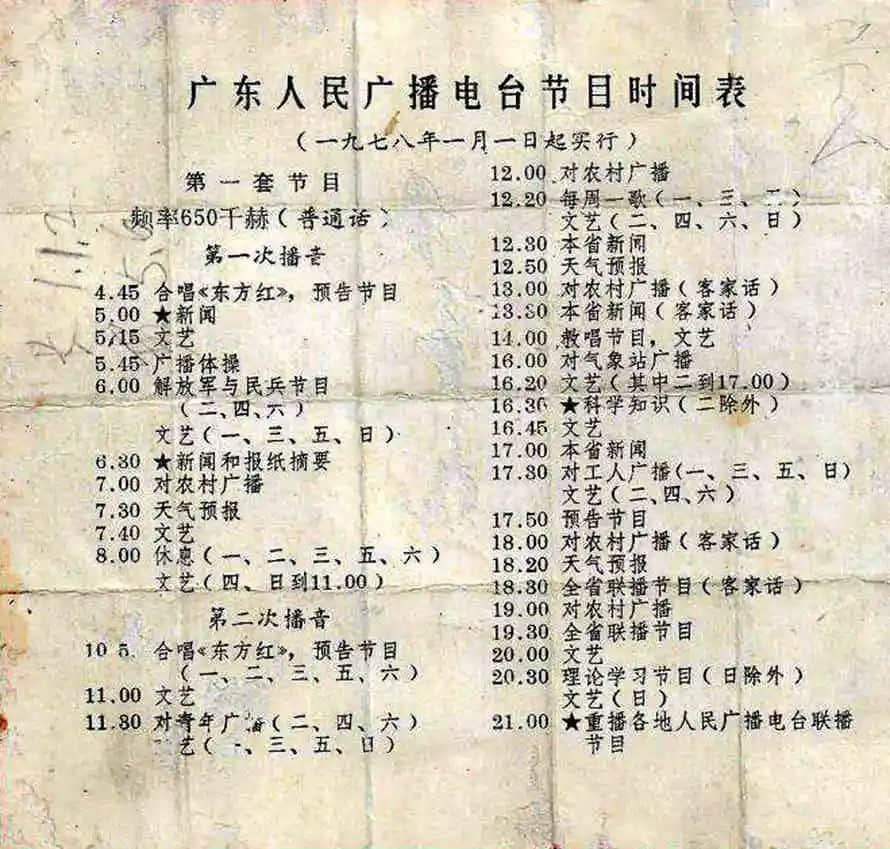 广东人民广播电台节目时间表
(一九七八年一月一日起实行)
第一套节目
频率650千赫(普通话)
第一次播音
4.45 合唱《东方红》，预告节目
5.00 ★新闻
5.15 文艺
5.45 广播体操
6.00 解放军与民兵节目
(二、四、六)
文艺(一、三、五、日)
6.30 ★新闻和报纸摘要
7.00 对农村广播
7.30 天气预报
7.40 文艺
8.00 休息(一、二、三、五、六)
文艺(四、日到11.00)
第二次播音
10.5 合唱《东方红》，预告节目
(一、二、三、五、六)
11.00 文艺
11.30 对青年广播(二、四、六)
艺(一、三、五、日)
12.00 对农村广播
12.20 每周一歌(一、三、
文艺(二、四、六、日)
12.30 本省新闻
12.50 天气预报
13.00 对农村广播(客家话)
13.30 本省新闻(客家话)
14.00 教唱节目，文艺
16.00 对气象站广播
16.20 文艺(其中二到17.00)
16.30 ★科学知识(二除外)
16.45 文艺
17.00 本省新闻
17.30 对工人广播(一、三、五、日)
文艺(二、四、六)
17.50 预告节目
18.00 对农村广播(客家话)
18.20 天气预报
18.30 全省联播节目(客家话)
19.00 对农村广播
19.30 全省联播节目
20.00 文艺
20.30 理论学习节目(日除外)
文艺(日)
21.00 ★重播各地人民广播电台联播
节目